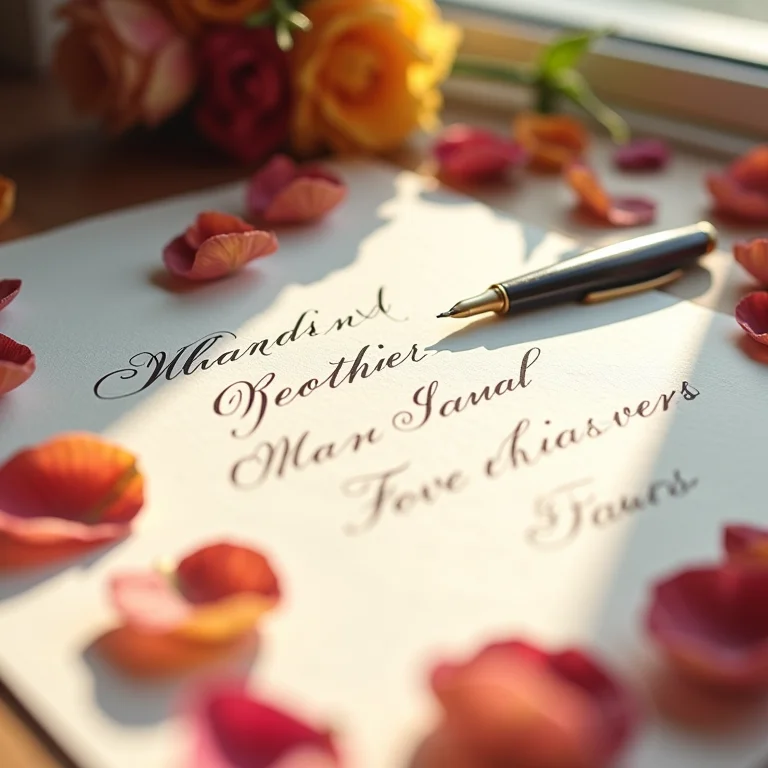 Whandind
Beothier
Man Sanal
Fove chiasvers
Taurs